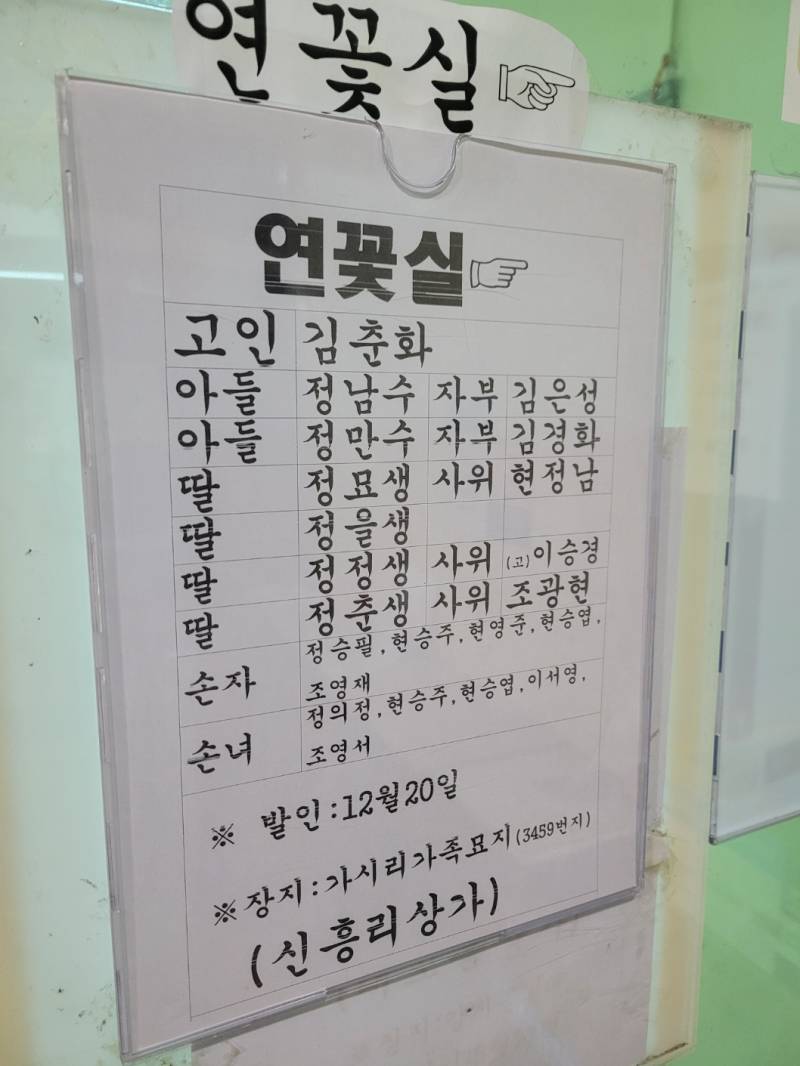 연꽃실
연꽃실
고인 김춘화
아들 정남수 자부 김은성
아들 정만수 자부 김경화
딸 정묘생 사위 현정남
딸 정을생
딸 정정생 사위 (고)이승경
딸 정춘생 사위 조광현
손자 정승필,현승주,현영준,현승엽,
조영재
손녀 정의정,현승주,현승엽,이서영,
조영서
※ 발인:12월20일
※장지:가시리가족묘지(3459번지)
(신흥리상가)